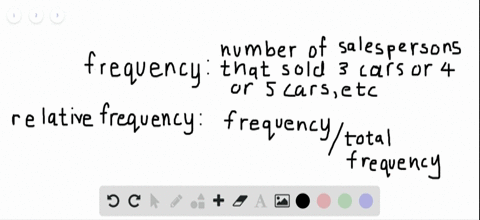 1 2 3
frequency: number of salespersons
that sold 3 cars or 4
or 5 cars, etc
relative frequency: frequency/total
frequency
A